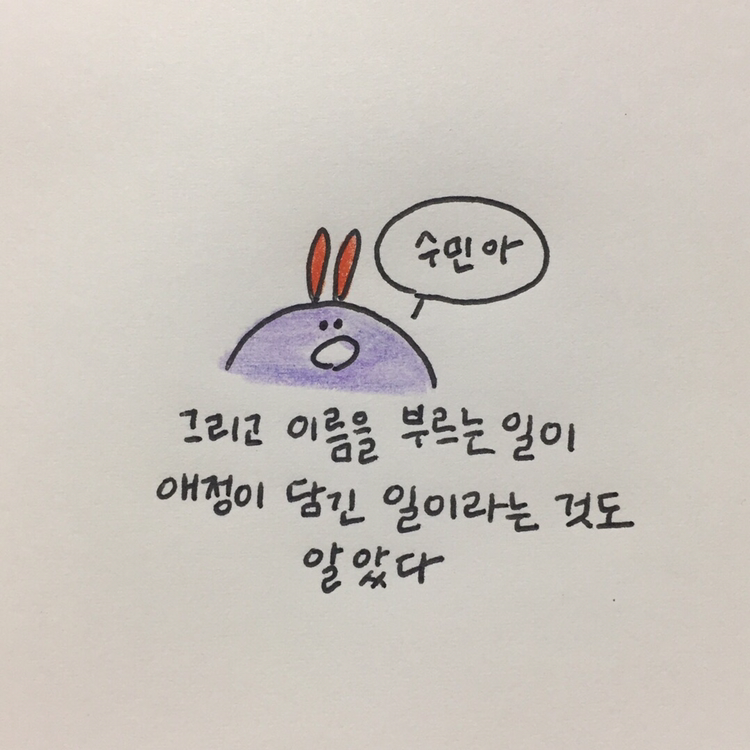 수민아
그리고 이름을 부르는 일이
애정이 담긴 일이라는 것도
알았다